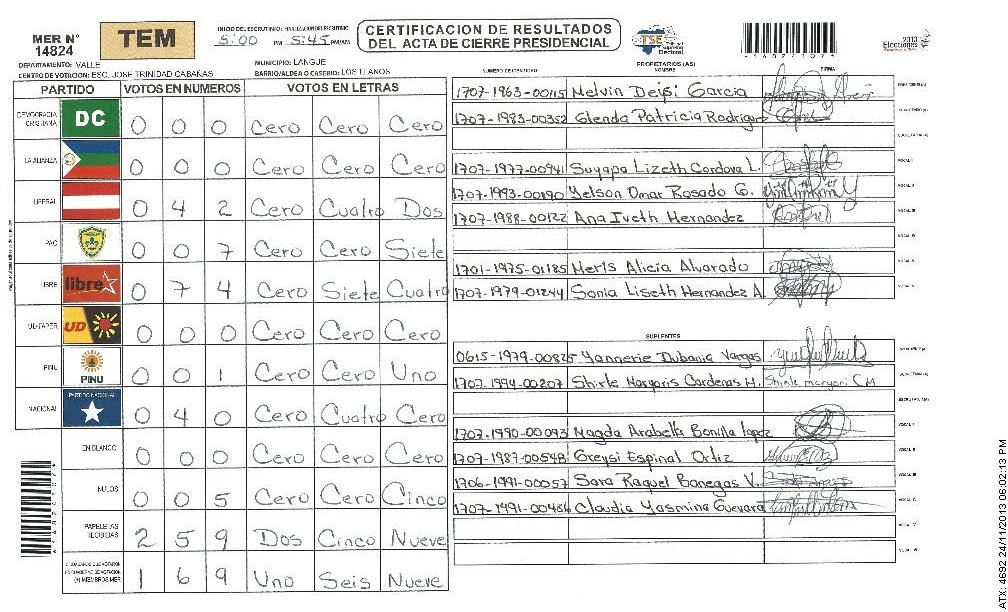 MER N° 14824
TEM
INICIO DEL ESCRUTINIO: FINALIZACION DEL ESCRUTINIO
5:00 PM 5:45 PM/AM
CERTIFICACION DE RESULTADOS
DEL ACTA DE CIERRE PRESIDENCIAL
TSE
Tribunal Supremo Electoral
2013
Elecciones
DEPARTAMENTO: VALLE
MUNICIPIO: LANGUE
CENTRO DE VOTACION: ESC. JOSE TRINIDAD CABAÑAS
BARRIO/ALDEA O CASERIO: LOS LLANOS
PARTIDO VOTOS EN NUMEROS VOTOS EN LETRAS
DEMOCRACIA CRISTIANA DC 0 0 0 Cero Cero Cero
LA ALIANZA 0 0 0 Cero Cero Cero
LIBERAL 0 4 2 Cero Cuatro Dos
PAC 0 0 7 Cero Cero Siete
LIBRE libre 0 7 4 Cero Siete Cuatro
UD/FAPER UD 0 0 0 Cero Cero Cero
PINU PINU 0 0 1 Cero Cero Uno
NACIONAL PARTIDO NACIONAL 0 4 0 Cero Cuatro Cero
EN BLANCO 0 0 0 Cero Cero Cero
NULOS 0 0 5 Cero Cero Cinco
PAPELETAS RECIBIDAS 2 5 9 Dos Cinco Nueve
(+) MIEMBROS MER 1 6 9 Uno Seis Nueve
PROPIETARIOS (AS)
NUMERO DE IDENTIDAD NOMBRE FIRMA
1707-1963-00115 Melvin Deysi Garcia
1707-1983-00352 Glenda Patricia Rodrigu
1707-1977-00941 Suyapa Lizeth Cordova L. VOCAL I
1707-1993-00190 Yelson Omar Rosado G. VOCAL II
1707-1988-00122 Ana Iveth Hernandez VOCAL III
VOCAL IV
1701-1975-01185 Merls Alicia Alvarado VOCAL V
1707-1979-01244 Sonia Liseth Hernandez A.
SUPLENTES
0615-1979-00825 Yannerie Dubania Vargas
1707-1994-00207 Shirle Maryoris Cardenas M. Shirle maryori CM
1707-1990-00093 Magda Arabella Bonilla lopez VOCAL I
1707-1987-00548 Greysi Espinal Ortiz VOCAL II
1706-1991-00057 Sara Raquel Banegas V. VOCAL III
1707-1991-00466 Claudia Yasmina Guevara
VOCAL V
VOCAL VI
ATX: 4692 24/11/2013 06:02:13 PM